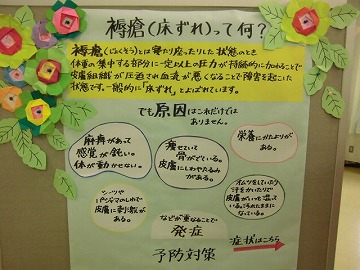 褥瘡(床ずれ)って何?
褥瘡(じょくそう)とは寝たり座ったりした状態のとき
体重の集中する部分に一定以上の圧力が持続的に加わることで
皮膚組織が圧迫され血流が悪くなることで障害を起こした
状態です。一般的に「床ずれ」とよばれています。
でも原因はこれだけでは
ありません。
麻痺があって
感覚が鈍い。
体が動かせない。
痩せていて
骨がでている。
皮膚にしわやたるみ
がある。
栄養にかたよりが
ある。
シーツや
パジャマのしわで
皮膚に刺激が
ある。
オムツをしていたり
汗をかいたりで
皮膚がいつも湿って
いる。汚れたままに
なっている。
などが重なることで
発症
症状はこちら
予防対策